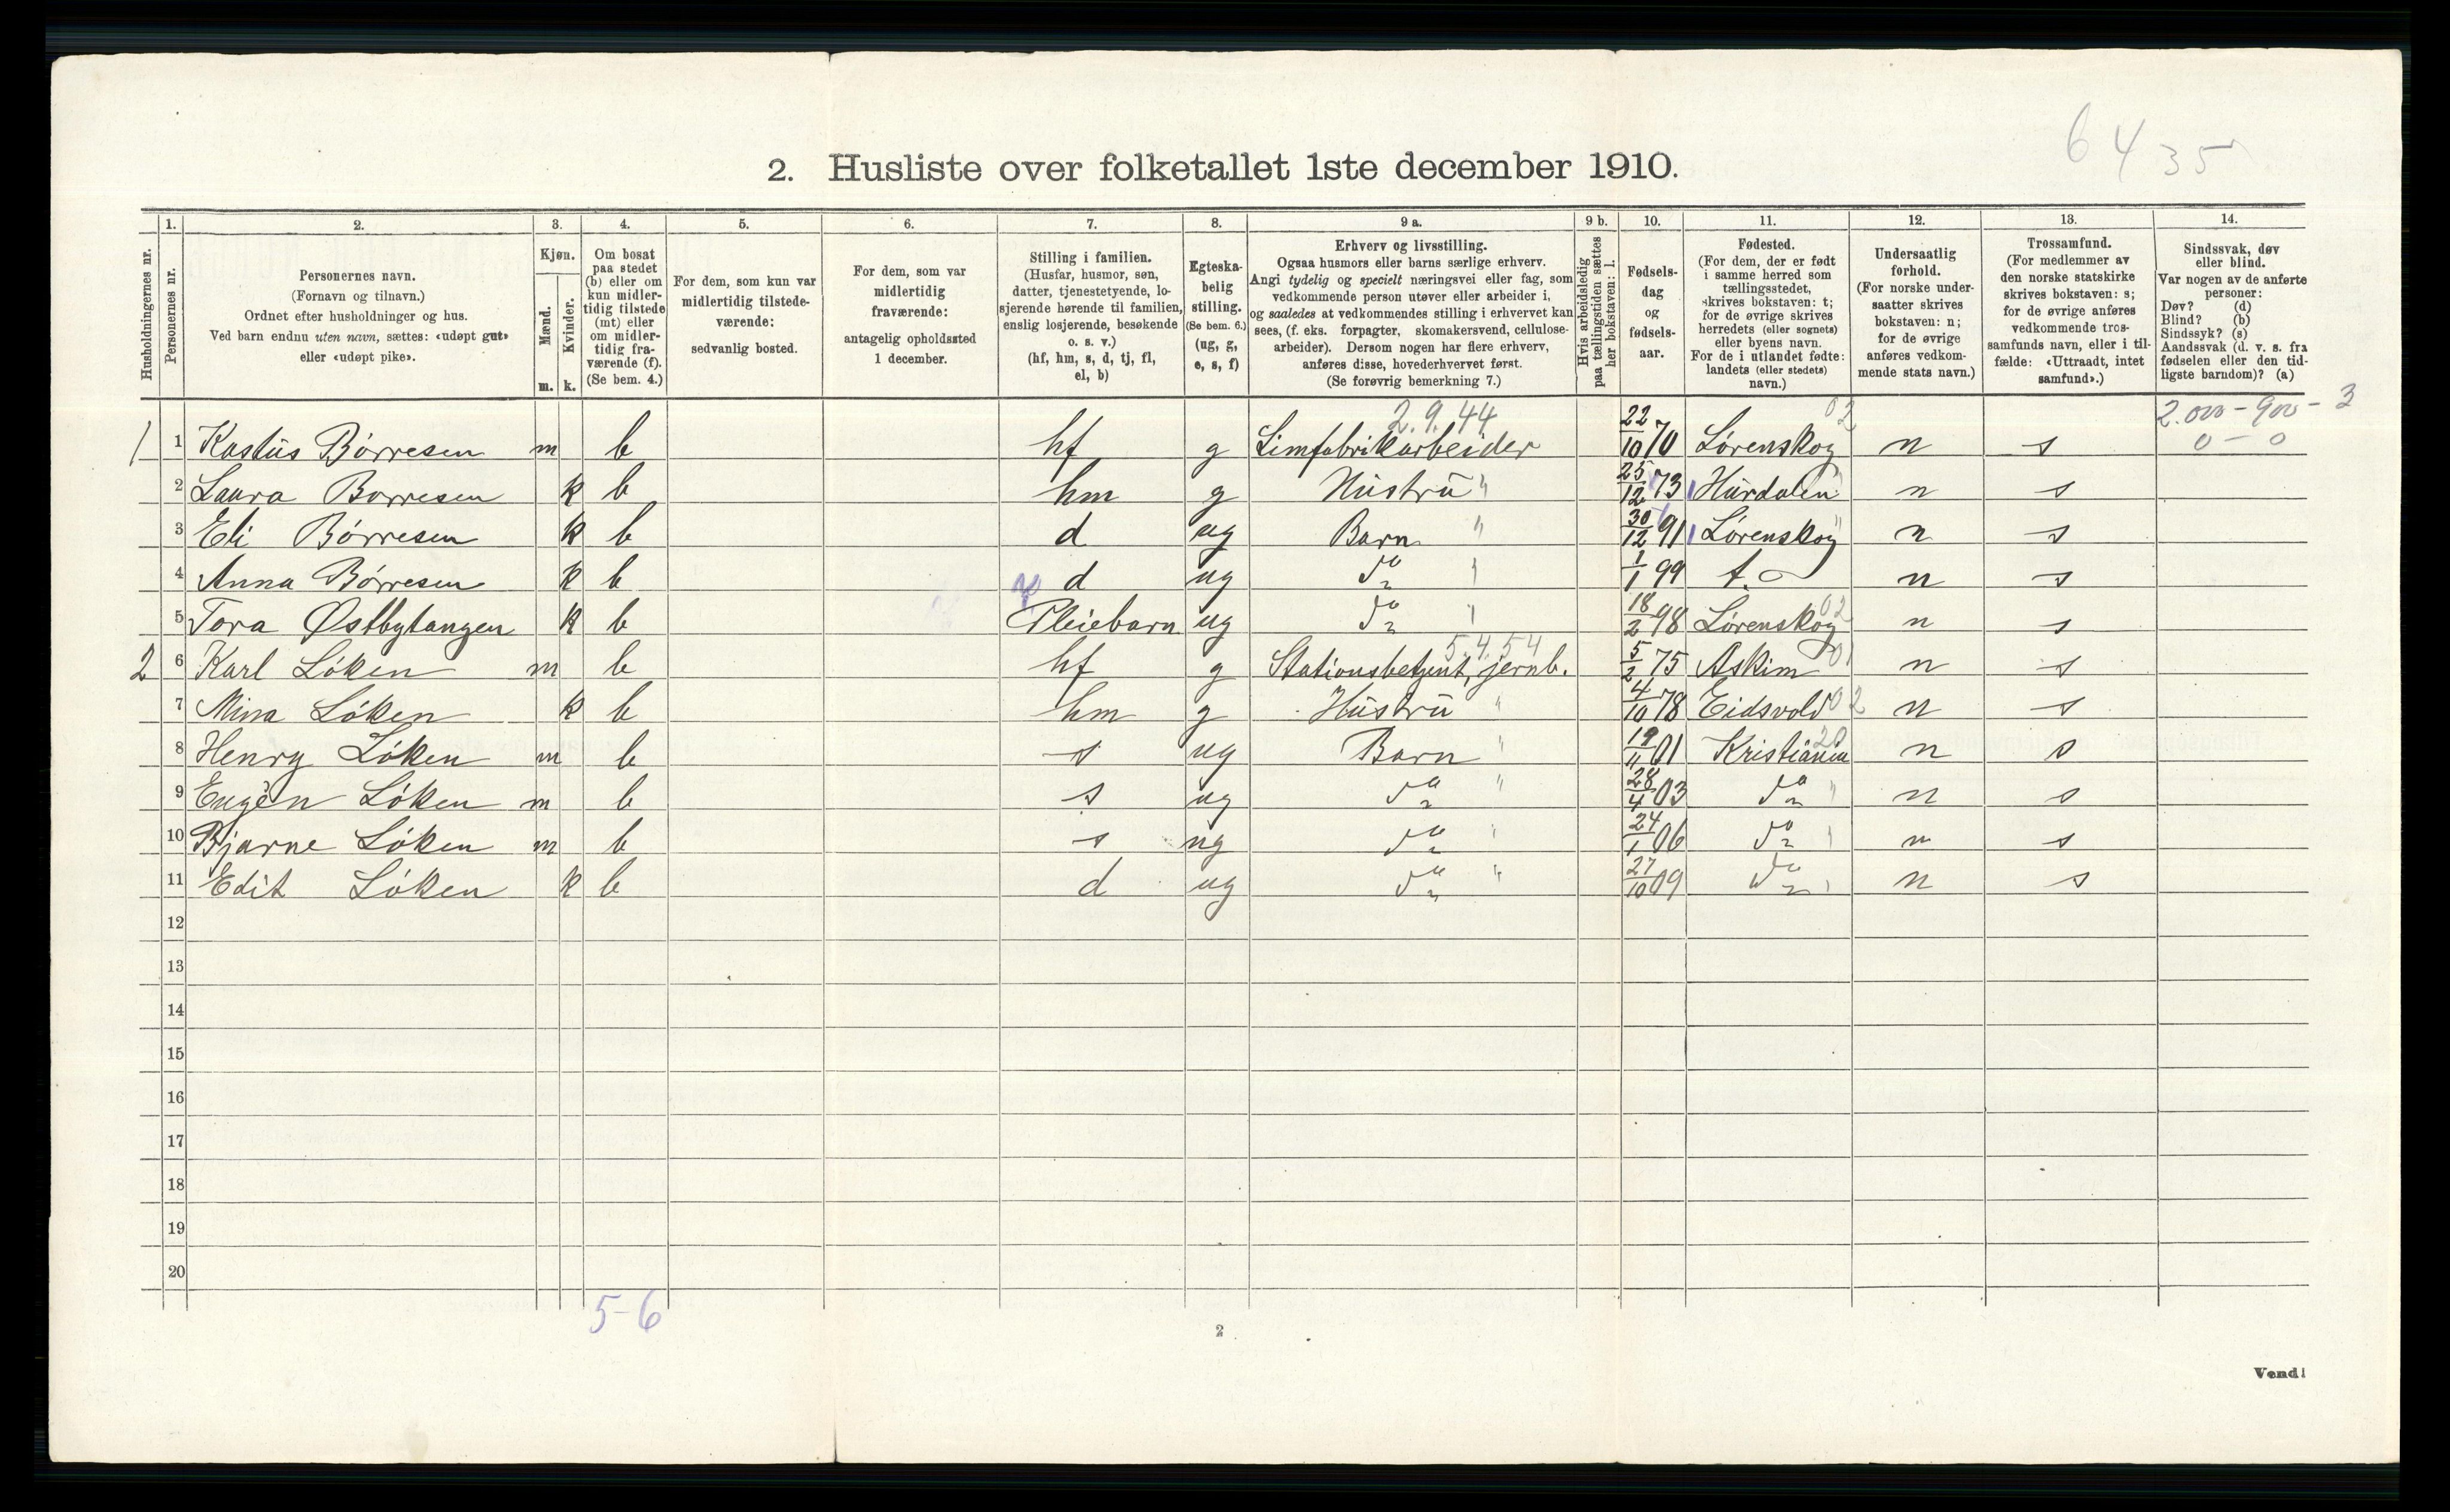 6435
2. Husliste over folketallet 1ste december 1910.
Husholdningernes nr.
1. Personernes nr.
2. Personernes navn. (Fornavn og tilnavn.) Ordnet efter husholdninger og hus. Ved barn endnu uten navn, sættes: «udøpt gut» eller «udøpt pike».
3. Kjøn. Mænd. m. Kvinder. k.
4. Om bosat paa stedet (b) eller om kun midlertidig tilstede (mt) eller om midlertidig fraværende (f). (Se bem. 4.)
5. For dem, som kun var midlertidig tilstedeværende: sedvanlig bosted.
6. For dem, som var midlertidig fraværende: antagelig opholdssted 1 december.
7. Stilling i familien. (Husfar, husmor, søn, datter, tjenestetyende, losjerende hørende til familien, enslig losjerende, besøkende o. s. v.) (hf, hm, s, d, tj, fl, el, b)
8. Egteskabelig stilling. (Se bem. 6.) (ug, g, e, s, f)
9 a. Erhverv og livsstilling. Ogsaa husmors eller barns særlige erhverv. Angi tydelig og specielt næringsvei eller fag, som vedkommende person utøver eller arbeider i, og saaledes at vedkommendes stilling i erhvervet kan sees, (f. eks. forpagter, skomakersvend, cellulosearbeider). Dersom nogen har flere erhverv, anføres disse, hovederhvervet først. (Se forøvrig bemerkning 7.)
9 b. Hvis arbeidsledig paa tællingstiden sættes her bokstaven: l.
10. Fødselsdag og fødselsaar.
11. Fødested. (For dem, der er født i samme herred som tællingsstedet, skrives bokstaven: t; for de øvrige skrives herredets (eller sognets) eller byens navn. For de i utlandet fødte: landets (eller stedets) navn.)
12. Undersaatlig forhold. (For norske undersaatter skrives bokstaven: n; for de øvrige anføres vedkommende stats navn.)
13. Trossamfund. (For medlemmer av den norske statskirke skrives bokstaven: s; for de øvrige anføres vedkommende trossamfunds navn, eller i tilfælde: «Uttraadt, intet samfund».)
14. Sindssvak, døv eller blind. Var nogen av de anførte personer: Døv? (d) Blind? (b) Sindssyk? (s) Aandssvak (d. v. s. fra fødselen eller den tidligste barndom)? (a)
2.9.44 02 2.000-900-3
1 1 Kastus Börresen m b hf g Limfabrikarbeider 22/10 70 Lørenskog n s 0-0
2 Laura Borresen k b hm g Hustru " 25/12 73 Hurdalen n s
3 Eli Börresen k b d ug Barn " 30/12 91 Lørenskog " n s
4 Anna Börresen k b d ug do " 1/1 99 t. n s
5 Tora Østbytangen k b Pleiebarn ug do " 18/2 98 Lørenskog 02 n s
5.4.54
2 6 Karl Löken m b hf g Stationsbetjent, jernb. 5/2 75 Askim 01 n s
7 Mina Löken k b hm g Hustru " 4/10 78 Eidsvold 02 n s
8 Henry Löken m b s ug Barn " 19/11 01 Kristiania 20 n s
9 Eugèn Löken m b s ug do " 28/4 03 do " n s
10 Bjarne Löken m b s ug do " 24/1 06 do " n s
11 Edit Löken k b d ug do " 27/10 09 do " n s
12
13
14
15
16
17
18
19
20
5-6
2
Vend!